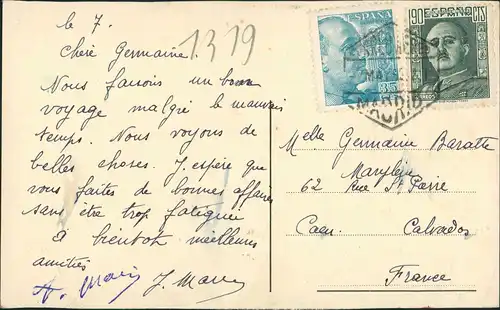 le 7.
1319
Chère Germaine.
Nous faisons un bon
voyage malgré le mauvais
temps. Nous voyons de
belles choses. J'espère que
vous faites de bonnes affaires
sans être trop fatiguée
à bientôt meilleures
amitiés
ESPAÑA
35
90 ESPAÑA CTS
MADRID
Melle Germaine Baratte
62 Rue St Pierre
Caen. Calvados
France